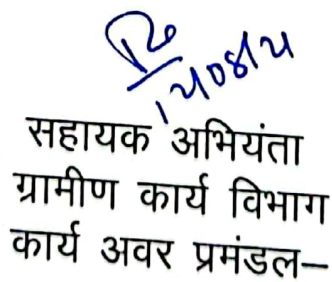 सहायक अभियंता
ग्रामीण कार्य विभाग
कार्य अवर प्रमंडल–